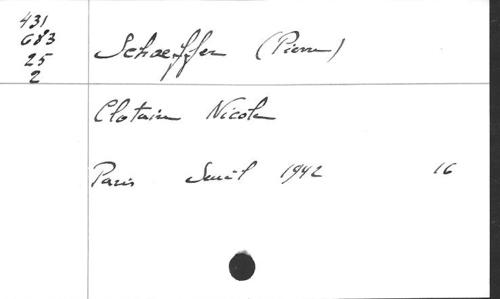 431
683
25
2
Schaeffer (Pierre)
Clotaire Nicole
Paris Seuil 1942 16